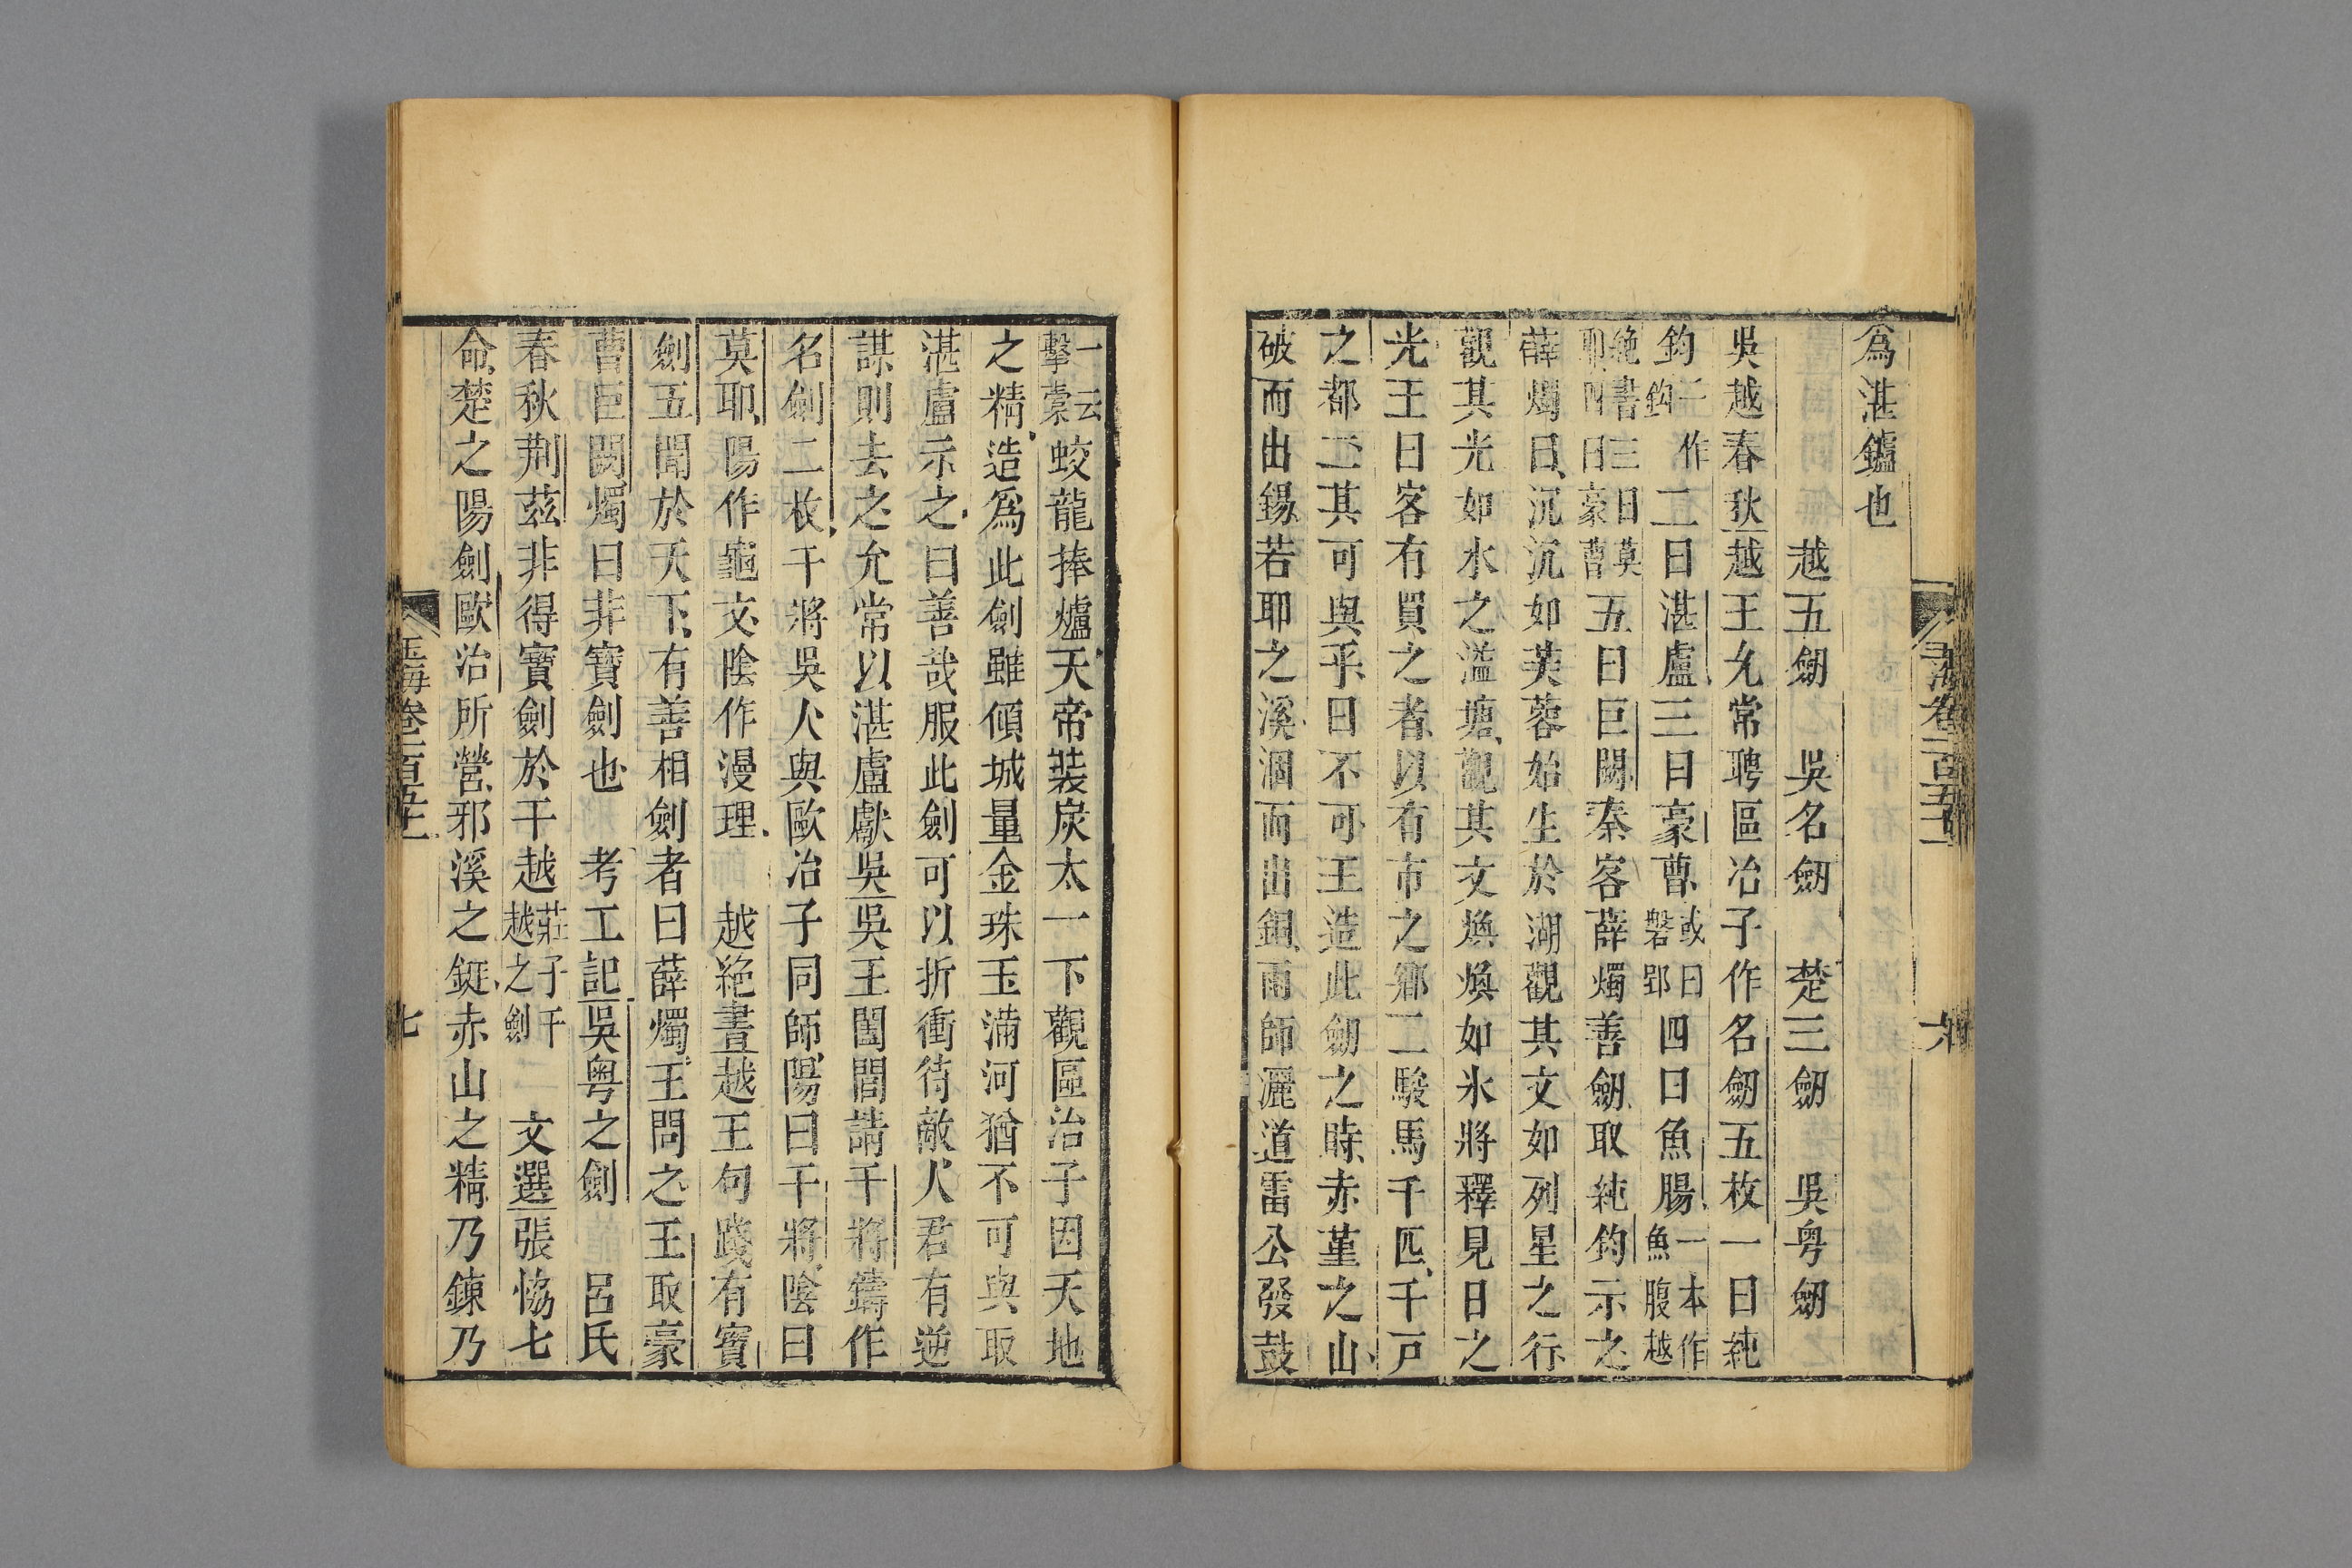 爲湛鑪也
越五劒 吳名劒 楚三劒 吳粤劒
吳越春秋越王允常聘區冶子作名劒五枚一曰純
鈞一作鈎二曰湛盧三曰豪曹或曰磐郢四曰魚腸一本作魚腹越
絶書三曰莫耶四曰豪曹五曰巨闕秦客薛燭善劒取純鈞示之
薛燭曰沉沉如芙蓉始生於湖觀其文如列星之行
觀其光如水之溢塘觀其文煥煥如氷將釋見日之
光王曰客有買之者以有市之鄉二駿馬千匹千戸
之都二其可與乎曰不可王造此劒之時赤堇之山
破而出錫若耶之溪涸而出銅雨師灑道雷公發鼓
一云擊橐蛟龍捧爐天帝裝炭太一下觀區冶子因天地
之精造爲此劍雖傾城量金珠玉滿河猶不可與取
湛盧示之曰善哉服此劍可以折衝待敵人君有逆
謀則去之允常以湛盧獻吳吳王闔閭請干將鑄作
名劍二枚干將吳人與歐冶子同師陽曰干將陰曰
莫耶陽作龜文陰作漫理 越絶書越王句踐有寳
劍五聞於天下有善相劍者曰薛燭王問之王取豪
曹巨闕燭曰非寶劍也 考工記吳粤之劍 呂氏
春秋荆茲非得寶劍於干越莊子干越之劍 文選張恊七
命楚之陽劍歐冶所營邪溪之鋌赤山之精乃鍊乃
玉海卷一百五十一
七